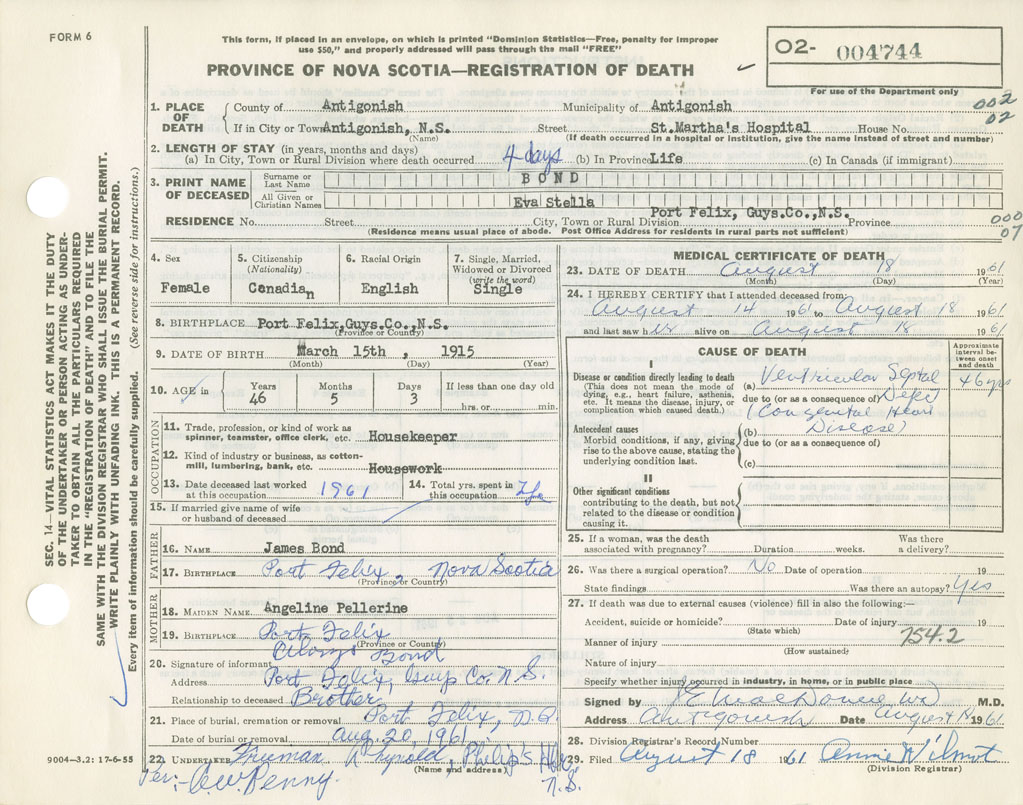 FORM 6
This form, if placed in an envelope, on which is printed "Dominion Statistics—Free, penalty for improper
use $50," and properly addressed will pass through the mail "FREE"
PROVINCE OF NOVA SCOTIA—REGISTRATION OF DEATH
02- 004744
For use of the Department only
002
02
1. PLACE OF DEATH
County of Antigonish Municipality of Antigonish
If in City or Town Antigonish, N.S. Street St.Martha's Hospital House No.
(Name) (If death occurred in a hospital or institution, give the name instead of street and number)
2. LENGTH OF STAY (in years, months and days)
(a) In City, Town or Rural Division where death occurred 4 days (b) In Province Life (c) In Canada (if immigrant)
3. PRINT NAME OF DECEASED
Surname or Last Name BOND
All Given or Christian Names Eva Stella
RESIDENCE No. Street City, Town or Rural Division Port Felix, Guys.Co.,N.S. Province
(Residence means usual place of abode. Post Office Address for residents in rural parts not sufficient)
000
07
4. Sex
Female
5. Citizenship
(Nationality)
Canadian
6. Racial Origin
English
7. Single, Married,
Widowed or Divorced
(write the word)
Single
8. BIRTHPLACE Port Felix,Guys.Co.,N.S.
(Province or Country)
9. DATE OF BIRTH March 15th, 1915
(Month) (Day) (Year)
10. AGE in Years Months Days If less than one day old
46 5 3 hrs. or min.
OCCUPATION
11. Trade, profession, or kind of work as
spinner, teamster, office clerk, etc. Housekeeper
12. Kind of industry or business, as cotton-
mill, lumbering, bank, etc. Housework
13. Date deceased last worked
at this occupation 1961
14. Total yrs. spent in
this occupation
15. If married give name of wife
or husband of deceased
FATHER
16. NAME James Bond
17. BIRTHPLACE Port Felix, Nova Scotia
(Province or Country)
MOTHER
18. MAIDEN NAME Angeline Pellerine
19. BIRTHPLACE Port Felix
(Province or Country)
20. Signature of informant Alonzo Bond
Address Port Felix, Guys Co. N.S.
Relationship to deceased Brother
21. Place of burial, cremation or removal Port Felix, N.S.
Date of burial or removal Aug. 20, 1961
22. UNDERTAKER Truman
(Name and address)
N.S.
Per: C.W. Penny.
MEDICAL CERTIFICATE OF DEATH
23. DATE OF DEATH August 18 1961
(Month) (Day) (Year)
24. I HEREBY CERTIFY that I attended deceased from
August 14 1961 to August 18 1961
and last saw her alive on August 18 1961
CAUSE OF DEATH
Approximate
interval be-
tween onset
and death
I
Disease or condition directly leading to death
(This does not mean the mode of
dying, e.g., heart failure, asthenia,
etc. It means the disease, injury, or
complication which caused death.)
(a) Ventricular Septal 46 yrs
due to (or as a consequence of) Defect
(Congenital Heart
Disease)
Antecedent causes
Morbid conditions, if any, giving
rise to the above cause, stating the
underlying condition last.
(b)
due to (or as a consequence of)
(c)
II
Other significant conditions
contributing to the death, but not
related to the disease or condition
causing it.
25. If a woman, was the death
associated with pregnancy? Duration weeks. Was there
a delivery?
26. Was there a surgical operation? No Date of operation 19
State findings Was there an autopsy? Yes
27. If death was due to external causes (violence) fill in also the following:—
Accident, suicide or homicide? Date of injury 19
(State which)
Manner of injury 754.2
(How sustained)
Nature of injury
Specify whether injury occurred in industry, in home, or in public place
Signed by M.D.
Address Antigonish Date August 1961
28. Division Registrar's Record Number
29. Filed August 18 1961 Annie Wilmot
(Division Registrar)
9004—3.2: 17-6-55
SEC. 14—VITAL STATISTICS ACT MAKES IT THE DUTY
OF THE UNDERTAKER OR PERSON ACTING AS UNDER-
TAKER TO OBTAIN ALL THE PARTICULARS REQUIRED
IN THE "REGISTRATION OF DEATH" AND TO FILE THE
SAME WITH THE DIVISION REGISTRAR WHO SHALL ISSUE THE BURIAL PERMIT.
WRITE PLAINLY WITH UNFADING INK. THIS IS A PERMANENT RECORD.
Every item of information should be carefully supplied. (See reverse side for instructions.)